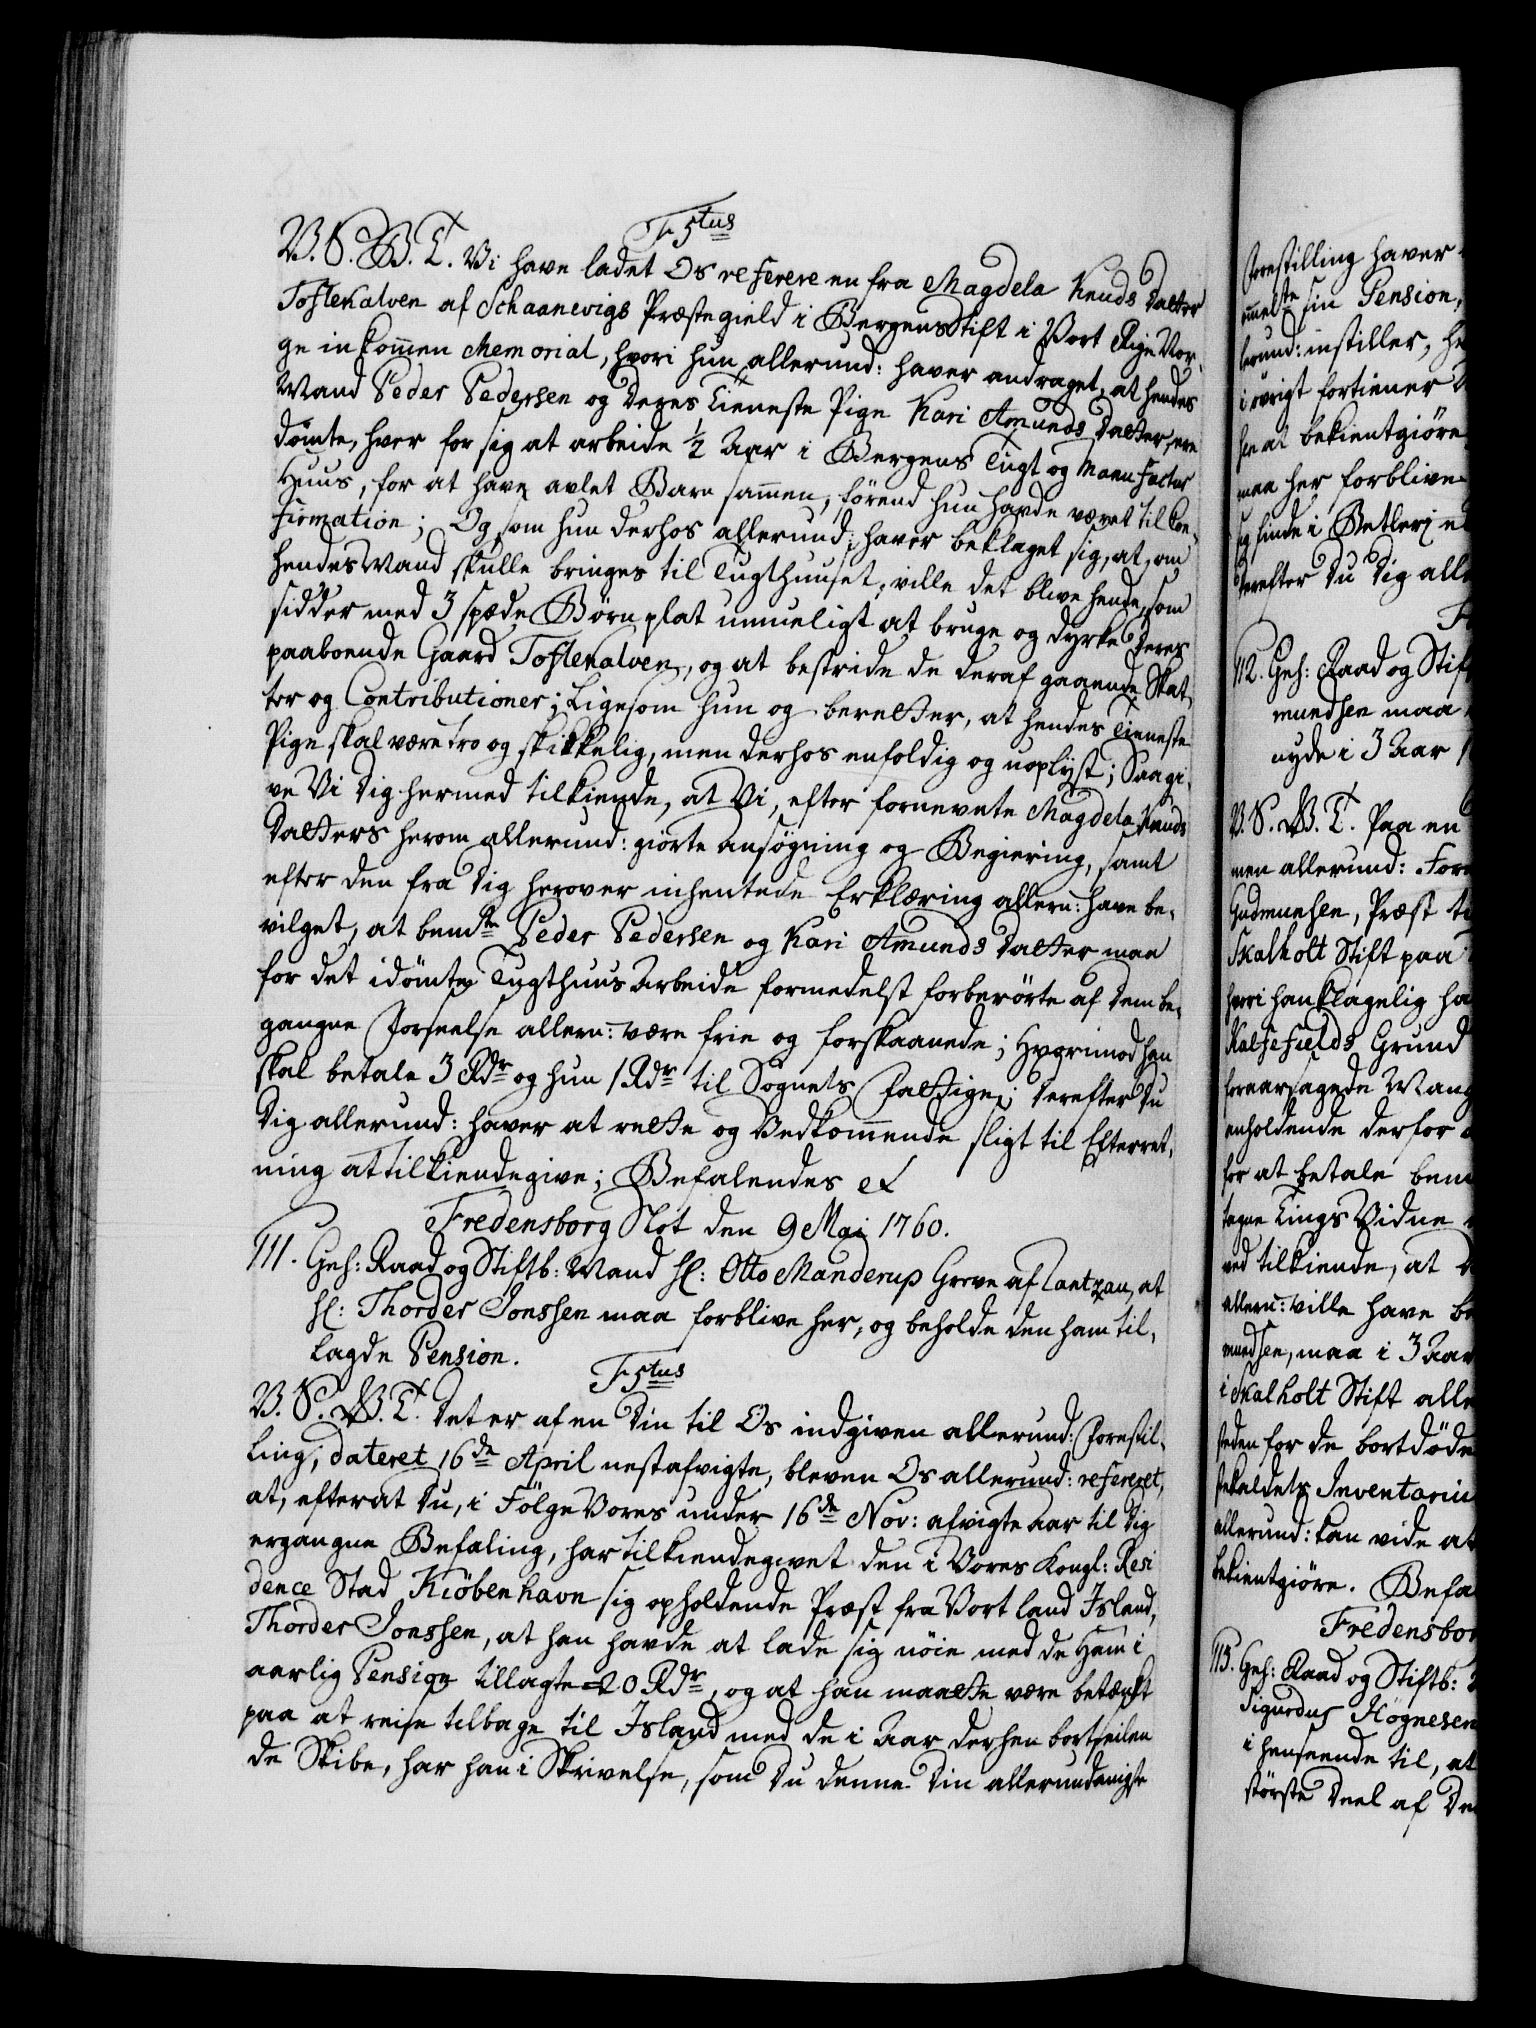 F5tus
V. S. G. T. Vi have ladet Os referere en fra Magdela Knuds Datter
Toftekalven af Schaanevigs Præstegield i Bergens Stift i Vort Rige Nor-
ge inkommen Memorial, hvori hun allerund: haver andraget, at hendes
Mand Peder Pedersen og deres Tieneste Pige Kari Amunds Datter, ere
dömte, hver for sig at arbeide ½ Aar i Bergens Tugt og Manufactur
Huus, for at have avlet Barn sammen, förend hun havde været til Con-
firmation; Og som hun derhos allerund: haver beklaget sig, at, om
hendes Mand skulle bringes til Tugthuuset, ville det blive hende, som
sidder med 3 spæde Börn plat umueligt at bruge og dyrke deres
paaboende Gaard Toftekalven, og at bestride de deraf gaaende Skat
ter og Contributioner; Ligesom hun og beretter, at hendes Tieneste
Pige skal være tro og skikkelig, men derhos enfoldig og uoplyst; Saa gi-
ve Vi dig hermed tilkiende, at Vi, efter fornevnte Magdela Knuds
Datters herom allerund: giorte ansøgning og Begiering, samt
efter den fra dig herover inhentede Erklæring allern: have be-
vilget, at bemte Peder Pedersen og Kari Amunds Datter maa
for det idömte Tugthuus Arbeide formedelst forberörte af dem be-
gangne Forseelse allern: være frie og forskaanede; Hvorimod han
skal betale 3 Rdr og hun 1 Rdr til Sognets Fattige; derefter du
dig allerund: haver at rette og Vedkommende sligt til Efterret-
ning at tilkiendegive; Befalendes &
Fredensborg Slot den 9 Mai 1760.
111. Geh: Raad og Stiftb: Mand Hl: Otto Manderup Greve af Rantzau, at
Hl: Thorder Jonssen maa forblive her, og beholde den ham til-
lagde Pension.
F5tus
V. S. G. T. Det er af en Din til Os indgiven allerund: Forestil-
ling, dateret 16de April nestafvigte, bleven Os allerund: refereret,
at, efterat Du, i Fölge Vores under 16de Nov: afvigte aar til dig
ergangne Befaling, har tilkiendegivet den i Vores Kongl: Resi
dence Stad Kiöbenhavn sig opholdende Præst fra Vort land Island,
Thorder Jonssen, at han havde at lade sig nöie med de Ham i
aarlig Pension tillagte 20 Rdr, og at han maatte være betænkt
paa at reise tilbage til Island med de i Aar derhen bortseilen
de Skibe, har han i Skrivelse, som Du denne Din allerundanigste
Forestilling haver
sin Pension,
lerund: instiller, he
i övrigt fortiener
at bekientgiöre
maa her forblive
finde i Betleri
derefter du dig alle
112. Geh: Raad og Stif
mundsen maa
nyde i 3 Aar
V. S. G. T. Paa en
men allerund: For
Gudmunsen, Præst
Skalholt Stift paa
hvori han klagelig ha
Kalfefields Grund
foraarsagede Mang
anholdende derfor
for at betale bem
tagne Tings Vidne
ved tilkiende, at
allern: ville have be
mundsen, maa i 3 Aar
i Skalholt Stift alle
steden for de bortdöde
Inventarium
allerund: kan vide at
bekientgiöre. Befa
Fredensbor
113. Geh: Raad og Stiftb:
Sigurdus Högnesen
i henseende til, at
störste Deel af